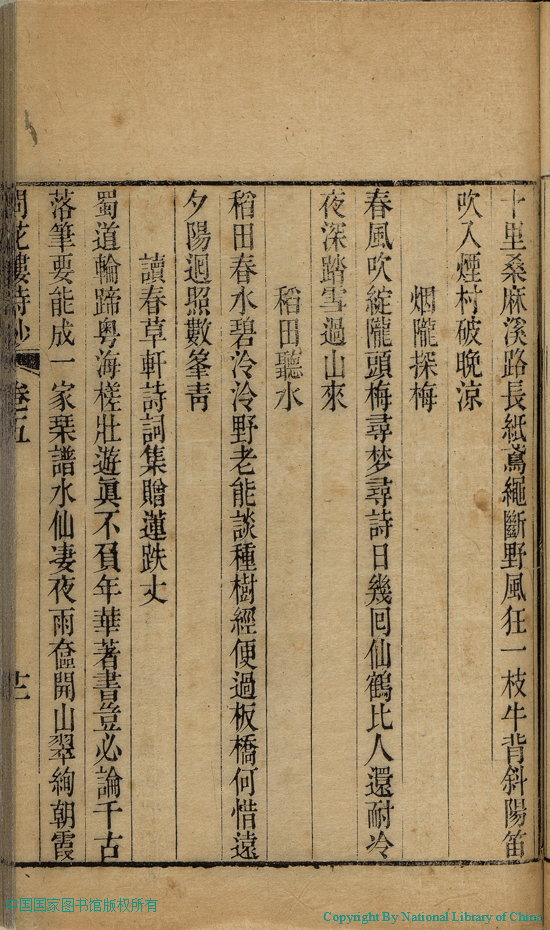 十里桑麻溪路長紙鳶繩斷野風狂一枝牛背斜陽笛
吹入煙村破晚涼
烟隴探梅
春風吹綻隴頭梅尋梦尋詩日幾囘仙鶴比人還耐冷
夜深踏雪過山來
稻田聽水
稻田春水碧泠泠野老能談種樹經便過板橋何惜遠
夕陽迴照數峯靑
讀春草軒詩詞集贈蓮趺丈
蜀道輪蹄粤海槎壯遊眞不負年華著書豈必論千古
落筆要能成一家琹譜水仙凄夜雨奩開山翠絢朝霞
問花樓詩鈔
卷五
十二
中国国家图书馆版权所有
Copyright By National Library of China